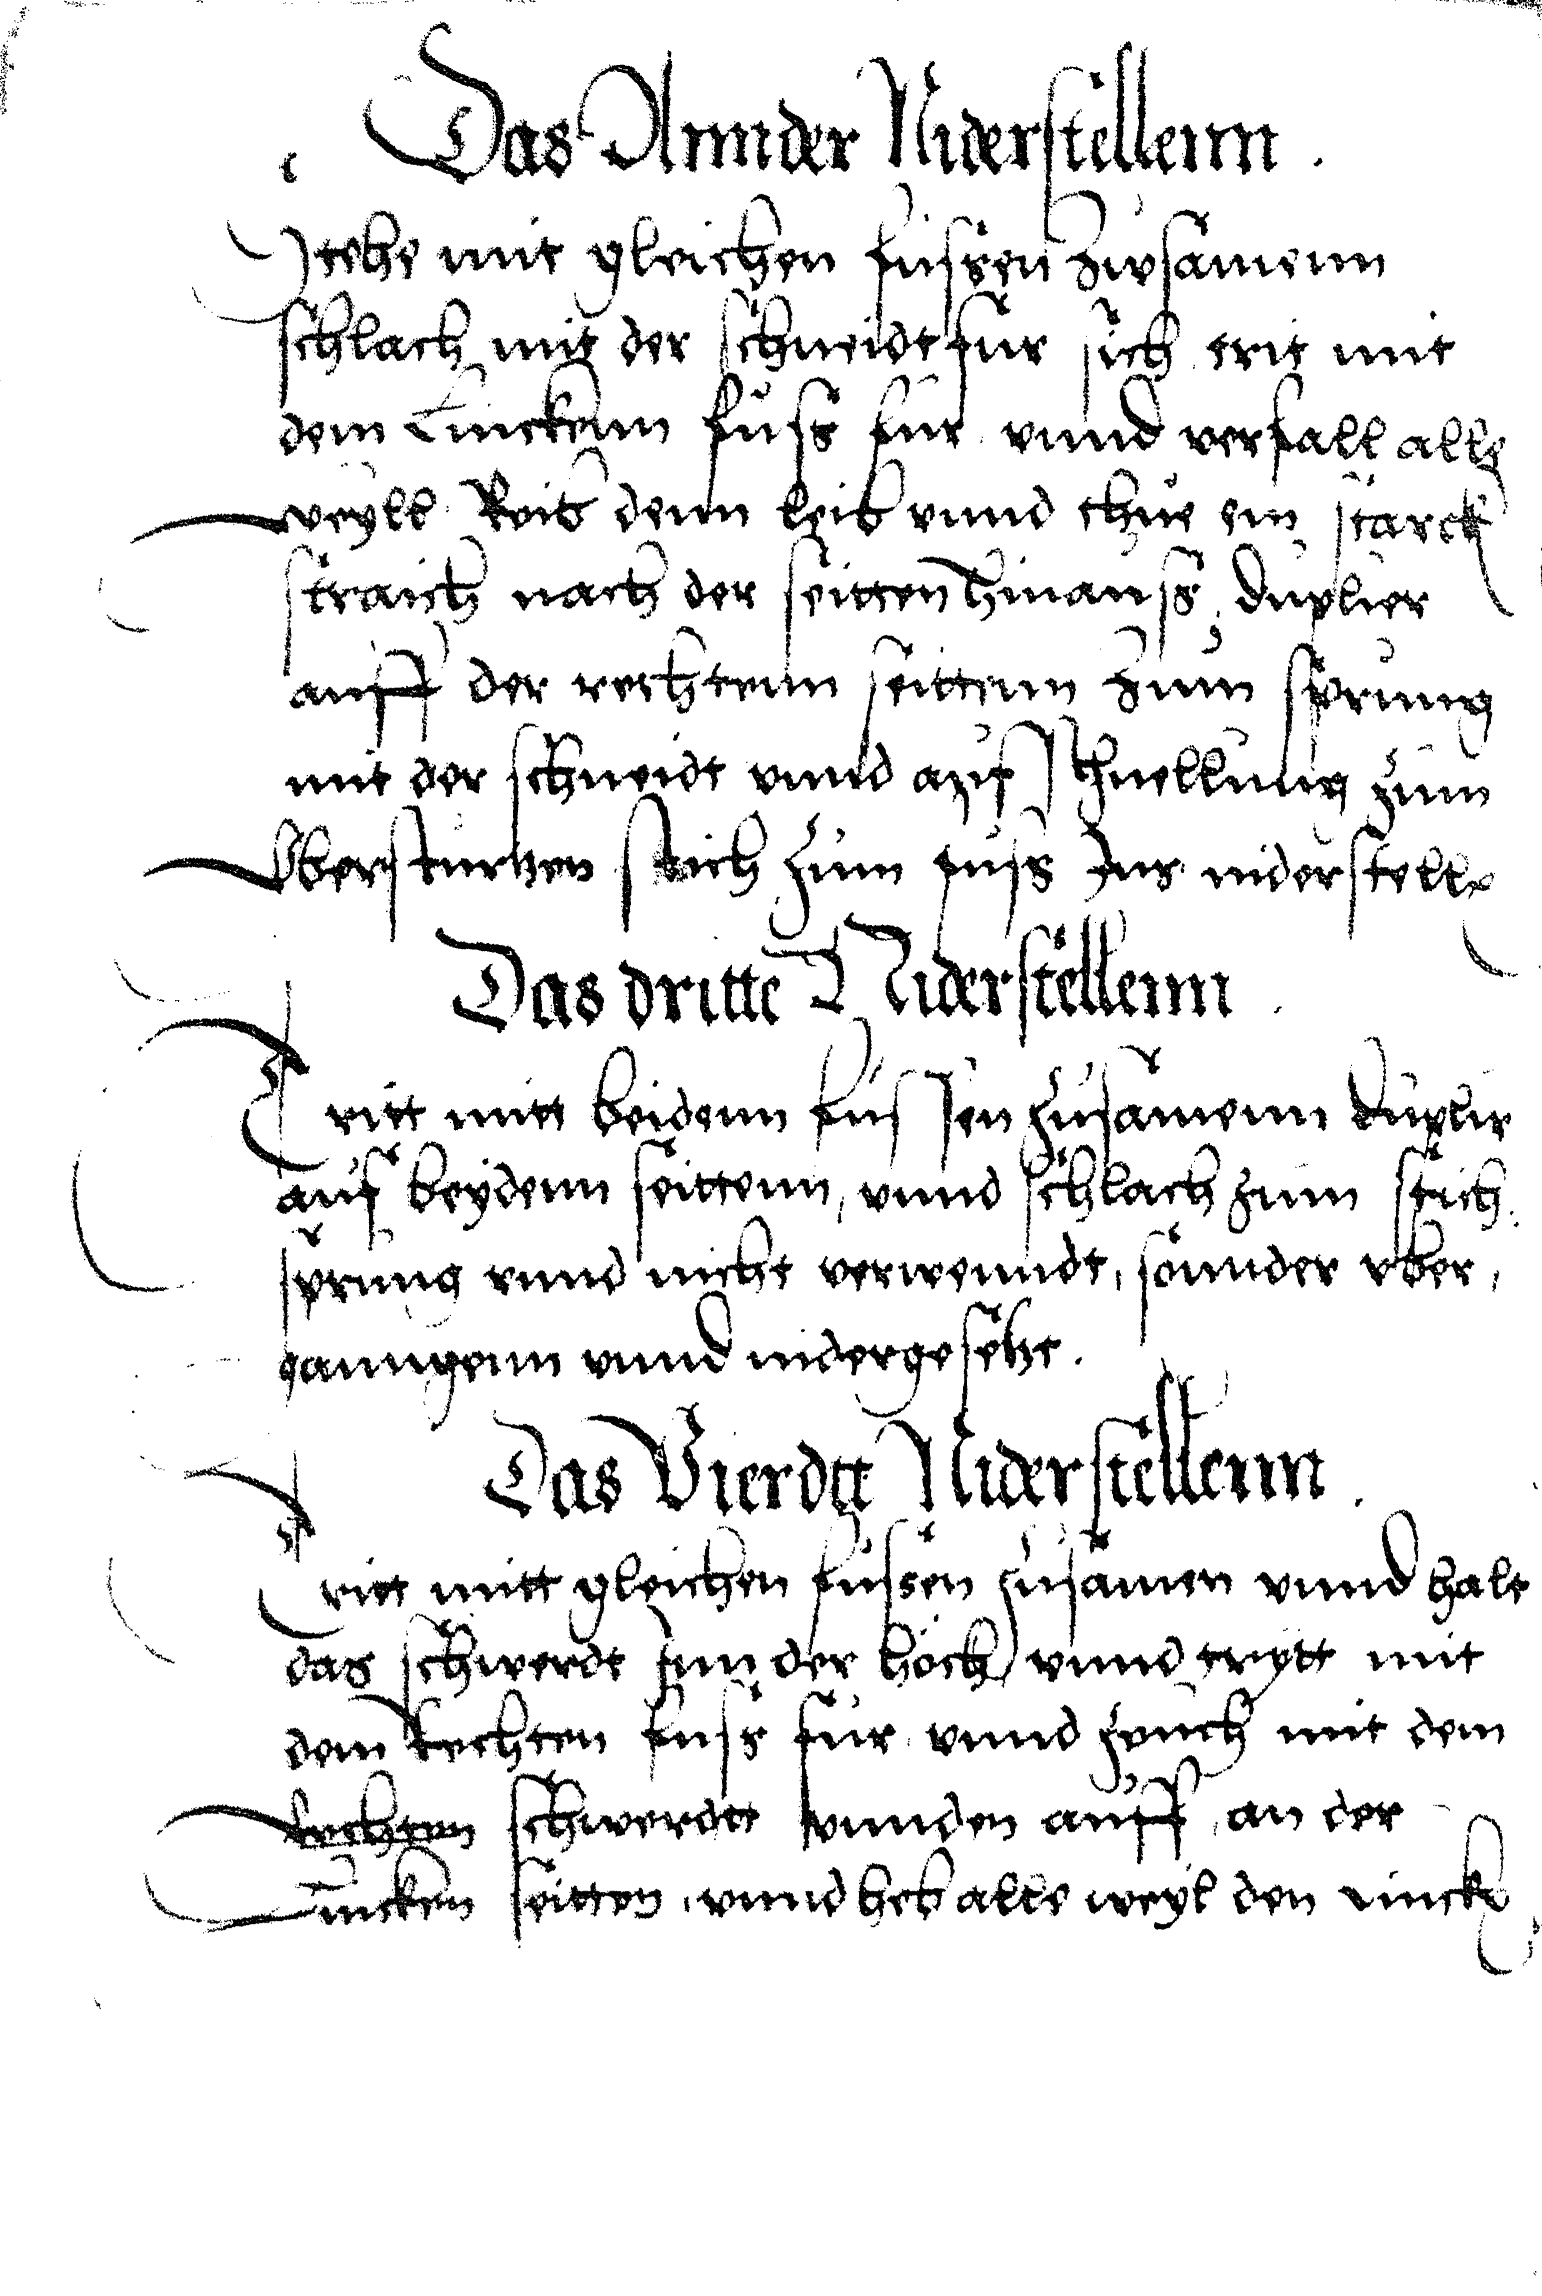 Das Annder Niderstellenn .
Stehe mit gleichen fussen zwsamenn
schlach mit der schneidt fur sich trit mit
dem Linckenn fuss fur vnnd verfall alle
weyll Reib denn leib vnnd thue ein starck
straich nach der seitten hinauss, duplier
auff der rechtenn seittenn zum sprung
mit der schneidt vnnd auf schnellung zum
Vbersturtzen strich zum fuss Zur niderstelle
Das dritte Niderstellenn .
Tritt mitt beidenn fussen zusamenn duplir
auf beydenn seittenn, vnnd schlach zum stich
sprung vnnd nicht verwenndt, sonnder vber,
ganngenn vnnd nidergesetzt.
Das Vierdtt Niderstellenn .
Tritt mitt gleichen fussen zusamen vnnd halt
das schwerdt Inn der höch vnnd trytt mit
dem Rechten fuss für vnnd zeuch mit dem
Rechten schwerdtt vnnden auff, an der
Lincken seitten, vnnd heb alle weyl den Lincke